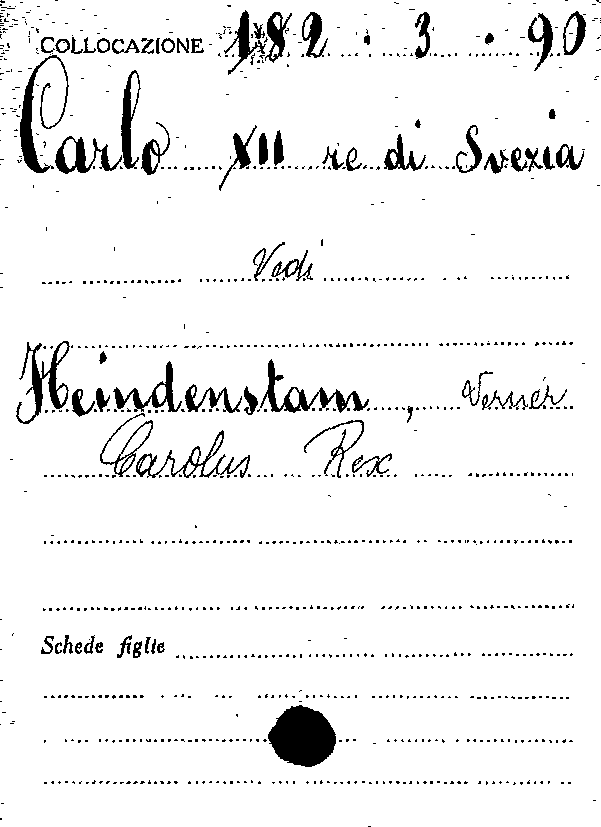 COLLOCAZIONE 182 . 3 . 90
Carlo XII re di Svezia
Vedi
Heindenstam, Verner
Carolus Rex
Schede figlie